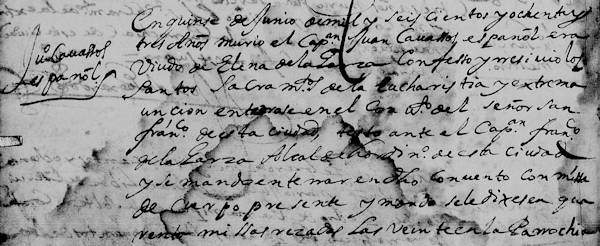 Ju.º Cavassos
español
En quinse de Junio de mil y seis Cientos y ochenta y
tres Años murio el Cap.ⁿ Juan Cavassos español era
Viudo de Elena de la Garza Confesso y rresivio los
Santos Sacram.ᵗᵒˢ de la Eucharistia y extrema
uncion enterrase en el Conv.ᵗᵒ del señor san
fran.ᶜᵒ de esta Ciudad, testo ante el Cap.ⁿ fran.ᶜᵒ
de la Garza Alcalde hordin.º de esta Ciudad
y se mando enterrar en dho Convento con missa
de Cuerpo presente y mando se le dixesen qua
renta missas rezadas las veinte en la Parrochia